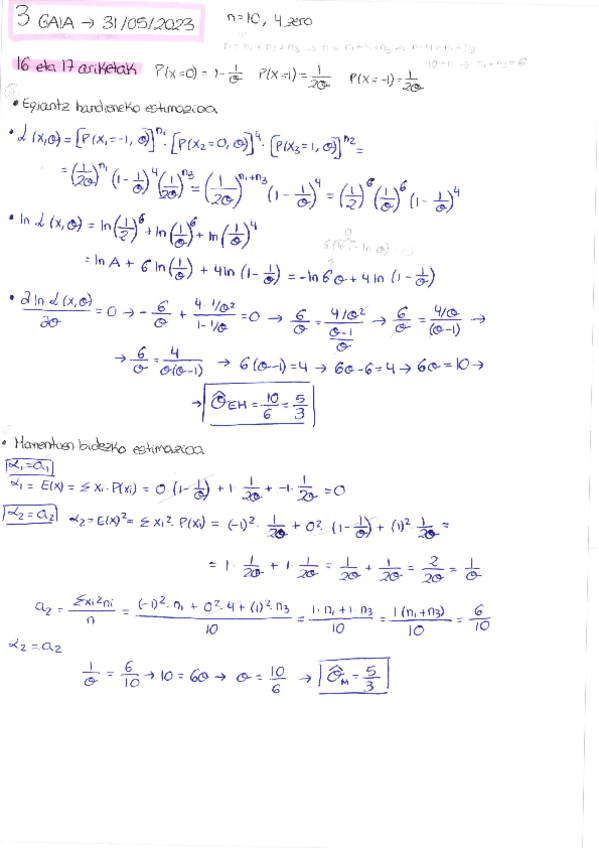 3 GAIA → 31/05/2023 n=10, 4 zero
n = n₁ + n₂ + n₃ → n = n₁+4+n₃ → n-4 = n₁+n₃
10=n → n₁+n₃=6
16 eta 17 ariketak P(x=0) = 1-1/θ P(x=1) = 1/2θ P(x=-1) = 1/2θ
• Egiantz handieneko estimazioa
• L(x,θ) = [P(x₁=-1, θ)]^n₁ · [P(x₂=0, θ)]^4 · [P(x₃=1, θ)]^n₂ =
= (1/2θ)^n₁ (1-1/θ)^4 (1/2θ)^n₃ = (1/2θ)^n₁+n₃ (1-1/θ)^4 = (1/2)^6 (1/θ)^6 (1-1/θ)^4
• ln L(x,θ) = ln(1/2)^6 + ln(1/θ)^6 + ln(1/θ)^4
= ln A + 6 ln(1/θ) + 4 ln(1-1/θ) = -ln 6θ + 4 ln(1-1/θ)
• ∂ ln L(x,θ)/∂θ = 0 → -6/θ + 4·1/θ²/1-1/θ = 0 → 6/θ = 4/θ²/θ-1/θ → 6/θ = 4/θ/(θ-1) →
→ 6/θ = 4/θ(θ-1) → 6(θ-1) = 4 → 6θ-6 = 4 → 6θ = 10 →
→ θ̂EH = 10/6 = 5/3
• Momentuen bidezko estimazioa
α₁=a₁
α₁ = E(x) = Σ xi·P(xi) = 0(1-1/θ) + 1·1/2θ + -1·1/2θ = 0
α₂=a₂ α₂ = E(x)² = Σ xi²·P(xi) = (-1)²·1/2θ + 0²·(1-1/θ) + (1)²·1/2θ =
= 1·1/2θ + 1·1/2θ = 1/2θ + 1/2θ = 2/2θ = 1/θ
a₂ = Σxi²ni/n = (-1)²·n₁ + 0²·4 + (1)²·n₃/10 = 1·n₁+1·n₃/10 = 1(n₁+n₃)/10 = 6/10
α₂ = a₂
1/θ = 6/10 → 10 = 6θ → θ = 10/6 → θ̂M = 5/3